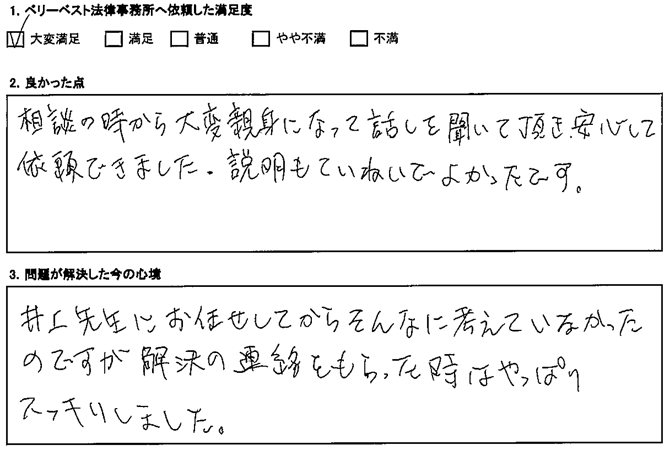 1. ベリーベスト法律事務所へ依頼した満足度
大変満足 満足 普通 やや不満 不満
2. 良かった点
相談の時から大変親身になって話しを聞いて頂き、安心して
依頼できました。説明もていねいでよかったです。
3. 問題が解決した今の心境
井上先生にお任せしてからそんなに考えていなかった
のですが解決の連絡をもらった時はやっぱり
スッキリしました。